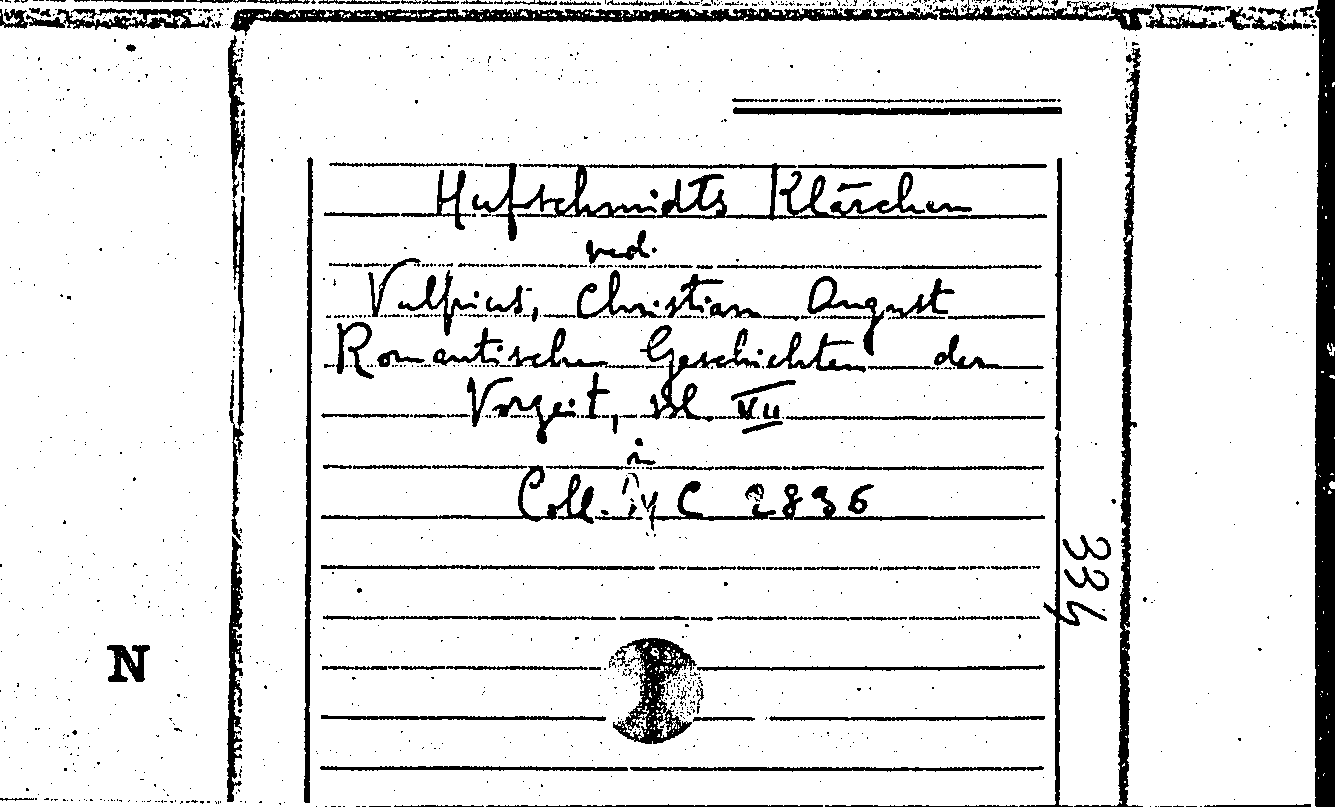 Hufschmidts Klärchen
ved.
Vulpius, Christian August
Romantischen Geschichten der
Vorzeit, vol. VII
in
Coll. C 2836
334
N